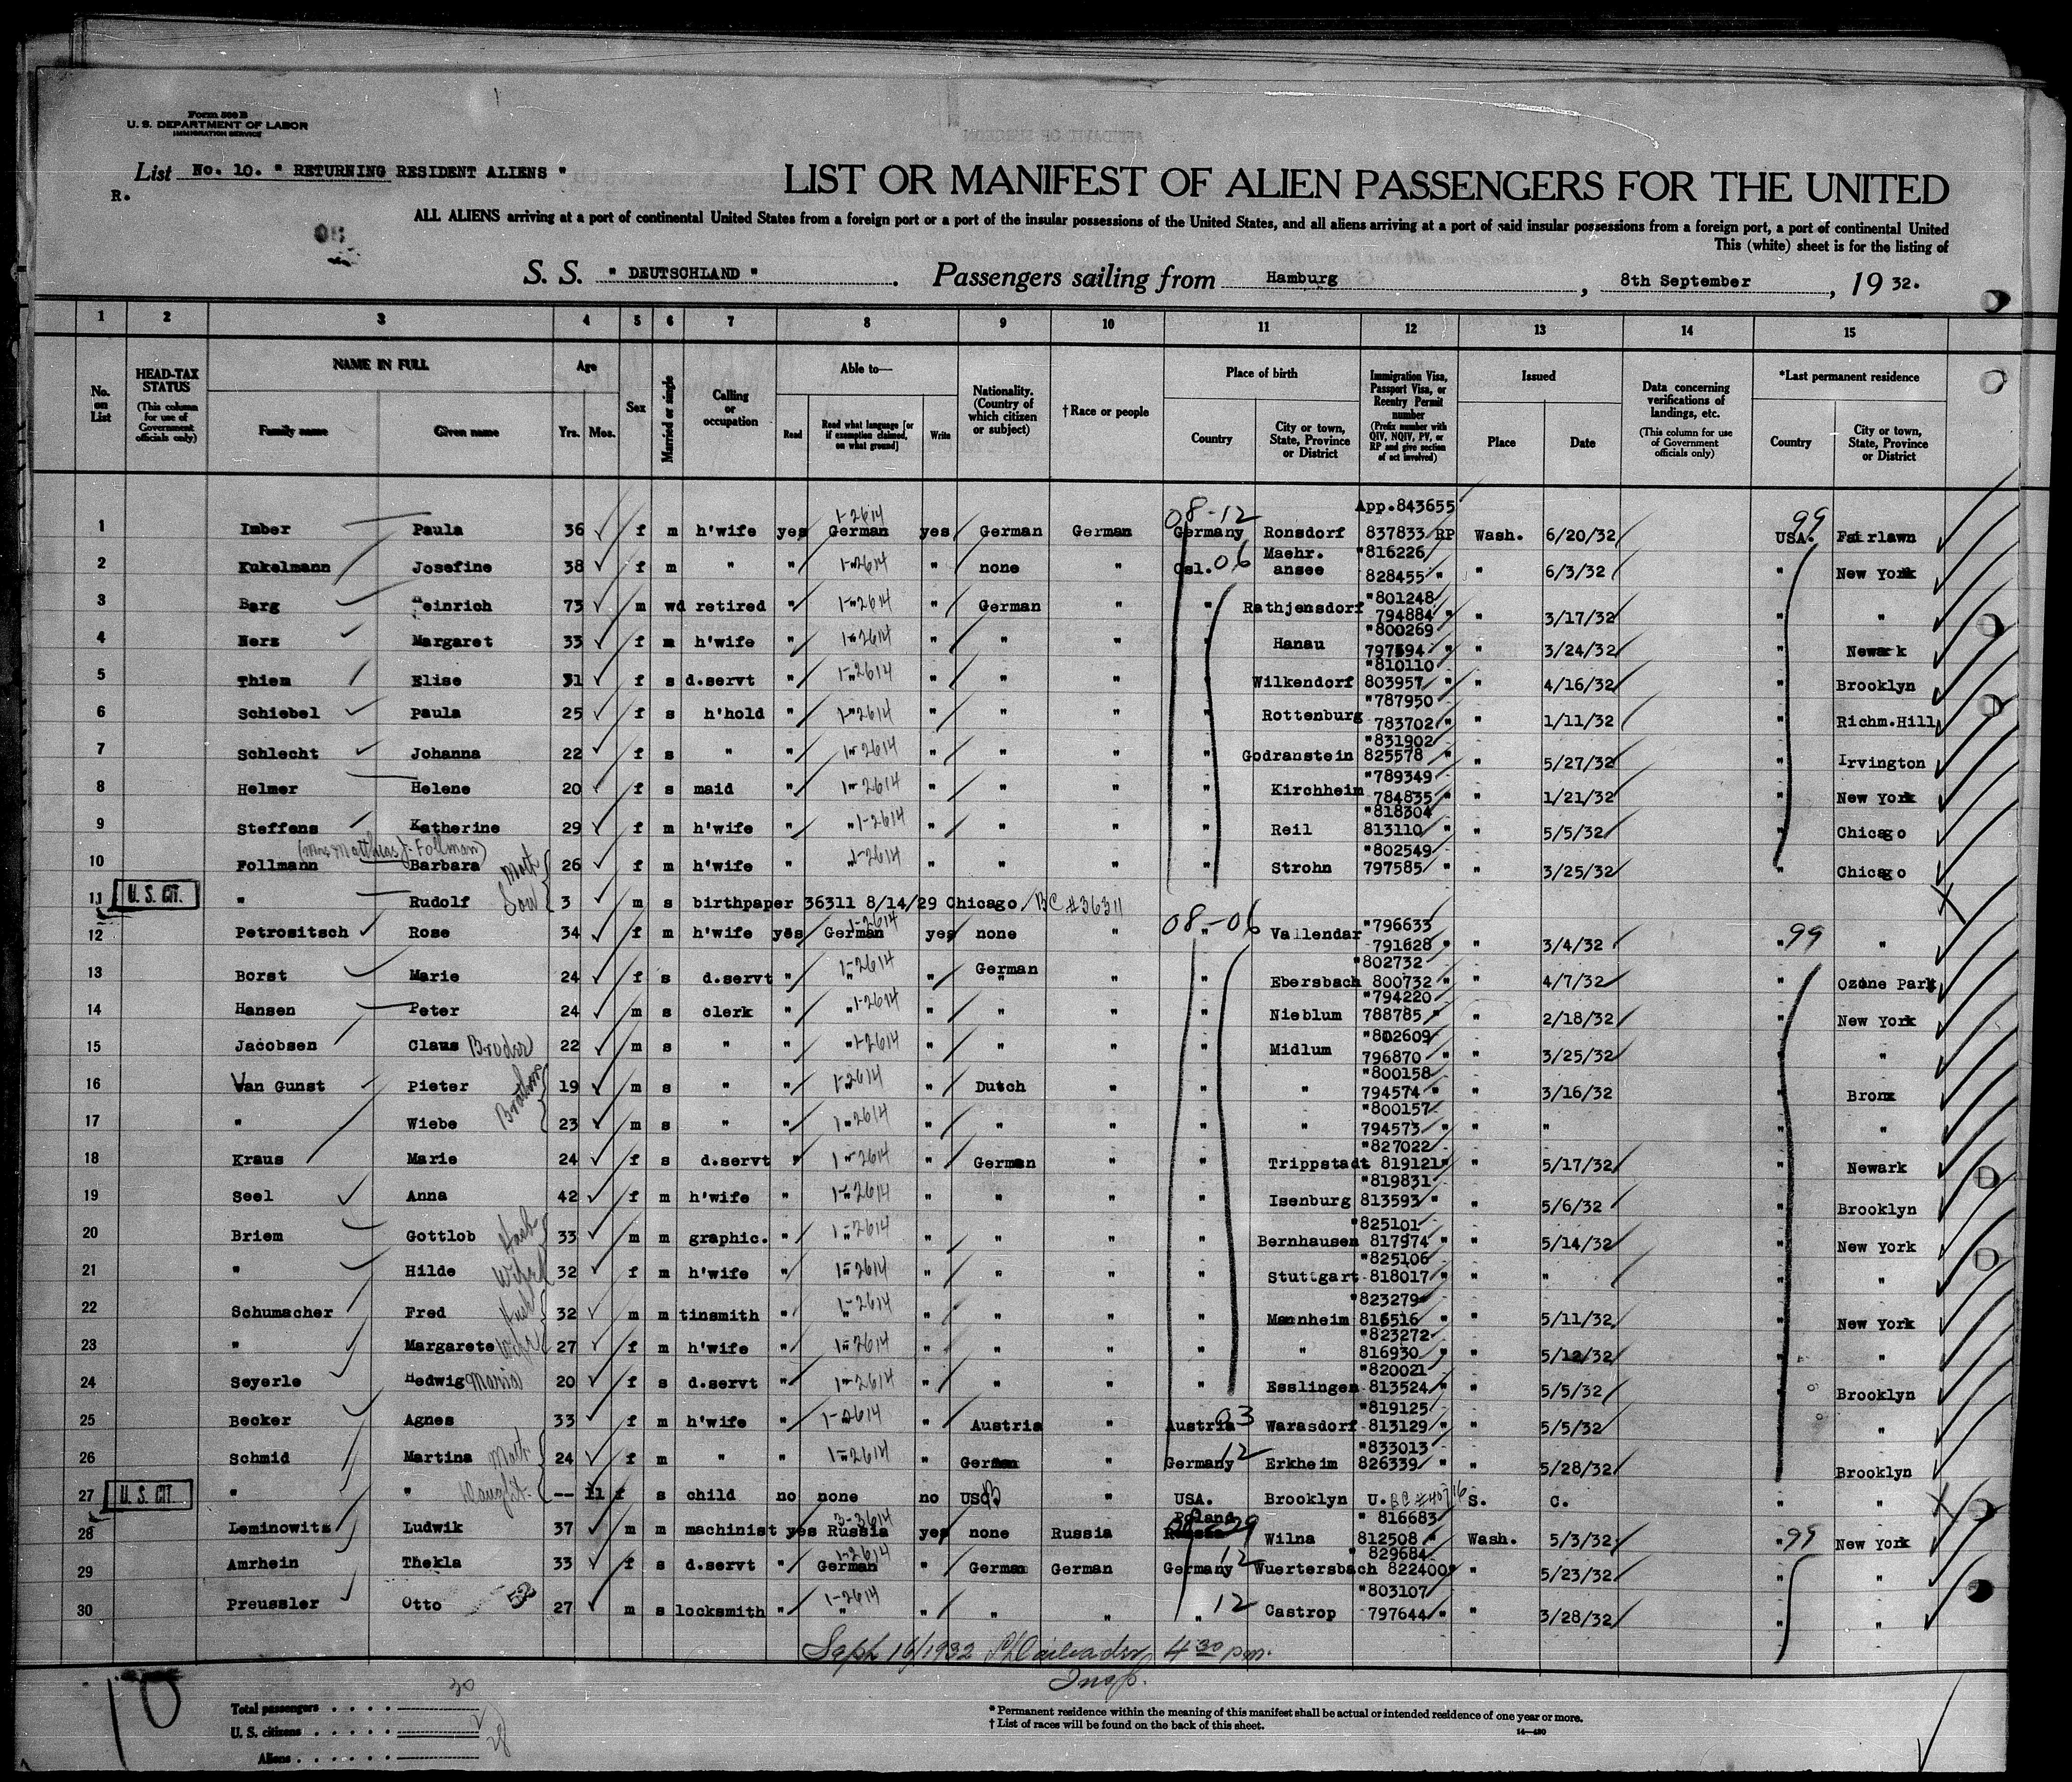 Form 500 B
U. S. DEPARTMENT OF LABOR
IMMIGRATION SERVICE
List No. 10. " RETURNING RESIDENT ALIENS "
R.
LIST OR MANIFEST OF ALIEN PASSENGERS FOR THE UNITED
ALL ALIENS arriving at a port of continental United States from a foreign port or a port of the insular possessions of the United States, and all aliens arriving at a port of said insular possessions from a foreign port, a port of continental United
This (white) sheet is for the listing of
S. S. " DEUTSCHLAND " . Passengers sailing from Hamburg , 8th September , 19 32.
1 2 3 4 5 6 7 8 9 10 11 12 13 14 15
No. on List
HEAD-TAX STATUS (This column for use of Government officials only)
NAME IN FULL Family name Given name
Age Yrs. Mos.
Sex
Married or single
Calling or occupation
Able to— Read Read what language [or if exemption claimed, on what ground] Write
Nationality. (Country of which citizen or subject)
†Race or people
Place of birth Country City or town, State, Province or District
Immigration Visa, Passport Visa, or Reentry Permit number (Prefix number with QIV, NQIV, PV, or RP and give section of act involved)
Issued Place Date
Data concerning verifications of landings, etc. (This column for use of Government officials only)
*Last permanent residence Country City or town, State, Province or District
App.843655
1 Imber Paula 36 f m h'wife yes 1-2614 German yes German German 08-12 Germany Ronsdorf 837833 RP Wash. 6/20/32 99 USA. Fairlawn
2 Kukelmann Josefine 38 f m " " 1-2614 " none " Csl. 06 Maehr. ansee "816226 828455 " " 6/3/32 " New York
3 Barg Heinrich 73 m wd retired " 1-2614 " German " " Rathjensdorf "801248 794884 " " 3/17/32 " "
4 Nerz Margaret 33 f m h'wife " 1-2614 " " " " Hanau "800269 797594 " " 3/24/32 " Newark
5 Thiem Elise 31 f s d.servt " 1-2614 " " " " Wilkendorf "810110 803957 " " 4/16/32 " Brooklyn
6 Schiebel Paula 25 f s h'hold " 1-2614 " " " " Rottenburg "787950 783702 " " 1/11/32 " Richm.Hill
7 Schlecht Johanna 22 f s " " 1-2614 " " " " Godranstein "831902 825578 " " 5/27/32 " Irvington
8 Helmer Helene 20 f s maid " 1-2614 " " " " Kirchheim "789349 784835 " " 1/21/32 " New York
9 Steffens Katherine 29 f m h'wife " " 1-2614 " " " " Reil "818304 813110 " " 5/5/32 " Chicago
(Mrs Matthias J. Follman)
10 Follmann Barbara Moth 26 f m h'wife " " 1-2614 " " " " Strohn "802549 797585 " " 3/25/32 " Chicago
11 U. S. CIT. " Rudolf Son 3 m s birthpaper 36311 8/14/29 Chicago BC #36311
12 Petrositsch Rose 34 f m h'wife yes 1-2614 German yes none " 08-06 " Vallendar "796633 791628 " " 3/4/32 " 99 "
13 Borst Marie 24 f s d.servt " 1-2614 " German " " " Ebersbach "802732 800732 " " 4/7/32 " Ozone Park
14 Hansen Peter 24 m s clerk " " 1-2614 " " " " Nieblum "794220 788785 " " 2/18/32 " New York
15 Jacobsen Claus Broder 22 m s " " " 1-2614 " " " " Midlum "802609 796870 " " 3/25/32 " "
16 Van Gunst Pieter Brothers 19 m s " " 1-2614 " Dutch " " " "800158 794574 " " 3/16/32 " Bronx
17 " Wiebe 23 m s " " 1-2614 " " " " " "800157 794573 " " " " "
18 Kraus Marie 24 f s d.servt " 1-2614 " German " " Trippstadt "827022 819121 " " 5/17/32 " Newark
19 Seel Anna 42 f m h'wife " 1-2614 " " " " Isenburg "819831 813593 " " 5/6/32 " Brooklyn
20 Briem Gottlob Husb 33 m m graphic. " 1-2614 " " " " Bernhausen "825101 817974 " " 5/14/32 " New York
21 " Hilde Wife 32 f m h'wife " 1-2614 " " " " Stuttgart "825106 818017 " " " " "
22 Schumacher Fred Husb 32 m m tinsmith " 1-2614 " " " " Mannheim "823279 816516 " " 5/11/32 " New York
23 " Margarete Wife 27 f m h'wife " 1-2614 " " " " " "823272 816930 " " 5/12/32 " "
24 Seyerle Hedwig Maria 20 f s d.servt " 1-2614 " " " " Esslingen "820021 813524 " " 5/5/32 " Brooklyn
25 Becker Agnes 33 f m h'wife " 1-2614 " Austria " Austria 03 Warasdorf "819125 813129 " " 5/5/32 " "
26 Schmid Martina Moth 24 f m " " 1-2614 " German " Germany 12 Erkheim "833013 826339 " " 5/28/32 " Brooklyn
27 U. S. CIT. " " Daught. -- 11 f s child no none no USC " USA. Brooklyn U. S. C. " "
28 Leminowitz Ludwik 37 m m machinist yes 3-3614 Russia yes none Russia Poland Russia Wilna " 816683 812508 " Wash. 5/3/32 " 99 New York
29 Amrhein Thekla 33 f s d.servt " 1-2614 German " German German Germany 12 Wuertersbach " 829684 822400 " " 5/23/32 " "
30 Preussler Otto 27 m s locksmith " 1-2614 " " " " " 12 Castrop "803107 797644 " " 3/28/32 " "
Sept 16/1932 4 30 pm.
Insp.
10
Total passengers 30
U. S. citizens
Aliens 28
* Permanent residence within the meaning of this manifest shall be actual or intended residence of one year or more.
† List of races will be found on the back of this sheet.
14—430